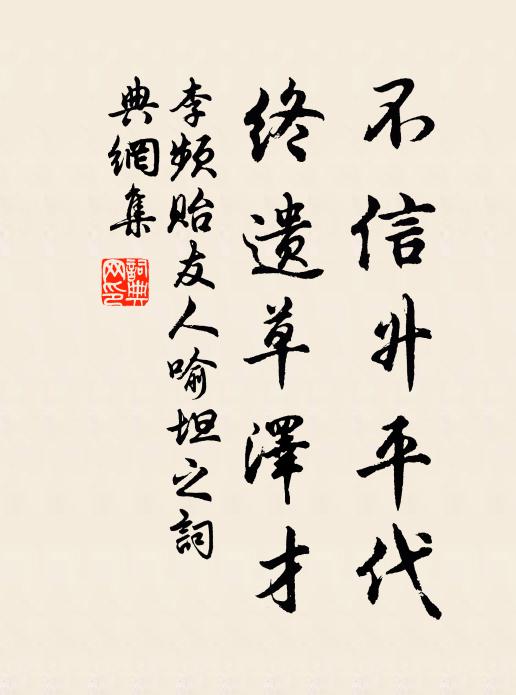 不信升平代
终遗草澤才
李频贻友人喻坦之詞
典網集
詞典
网印